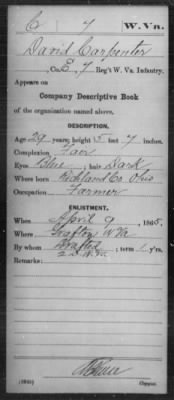 C 7 W. Va.
David Carpenter
, Co. E, 7 Reg't W. Va. Infantry.
Appears on
Company Descriptive Book
of the organization named above.
DESCRIPTION.
Age 29 years; height 5 feet 7 inches.
Complexion Fair
Eyes Blue ; hair Dark
Where born Richland Co Ohio
Occupation Farmer
ENLISTMENT.
When April 9 , 1865.
Where Grafton W Va
By whom Drafted ; term 1 y'rs.
Remarks:
Copyist.